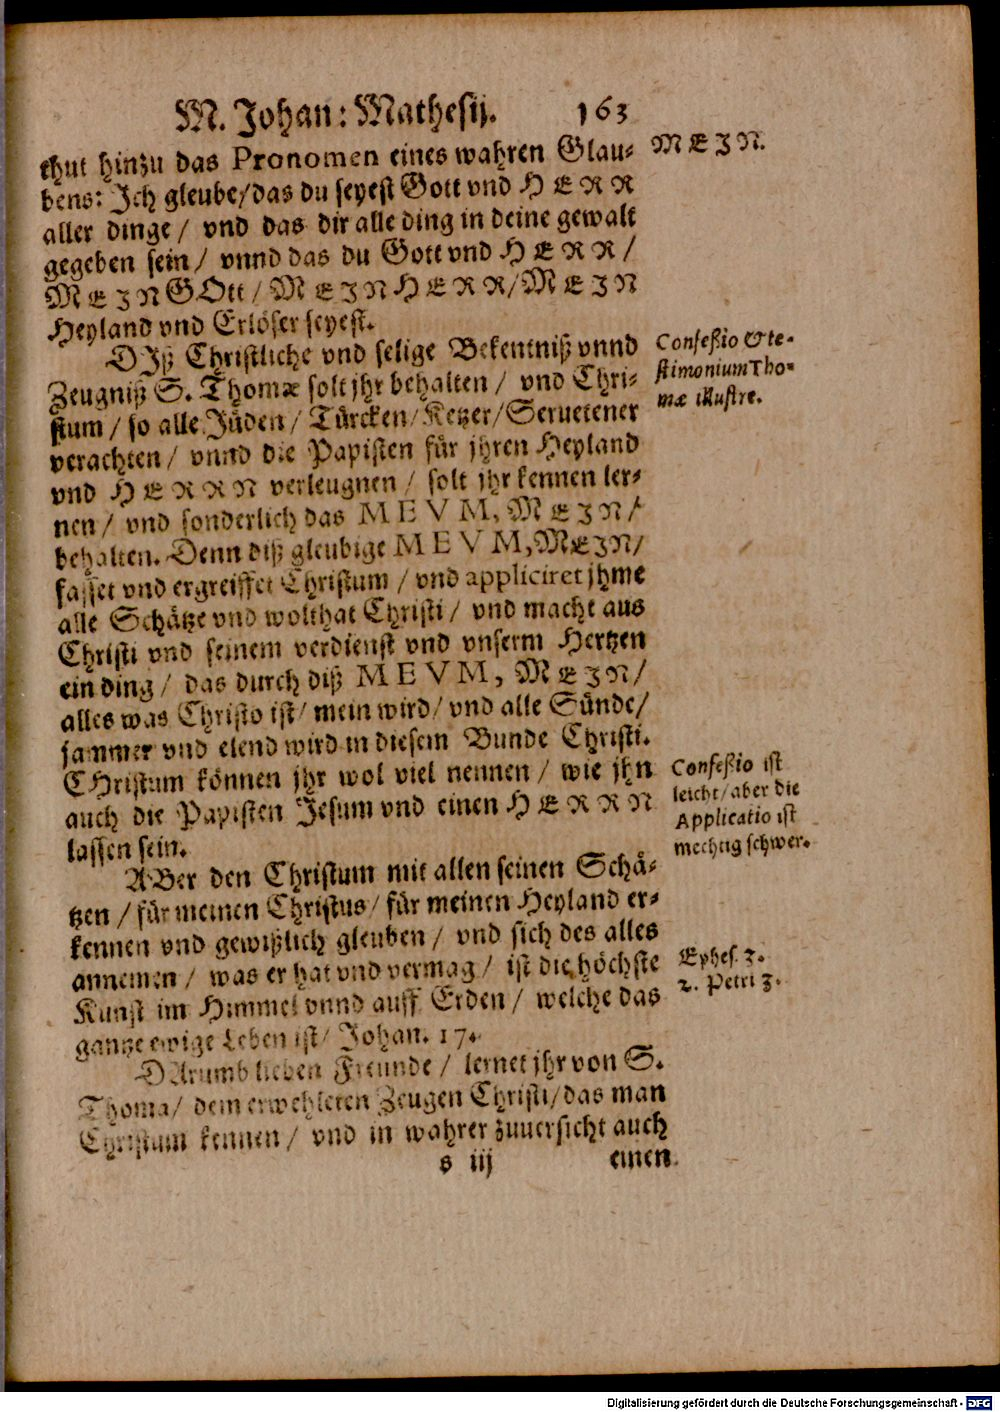 M. Johan: Mathesij. 163
thut hinzu das Pronomen eines wahren Glau-
MEJN.
bens: Jch gleube/das du seyest Gott vnd HERR
aller dinge/ vnd das dir alle ding in deine gewalt
gegeben sein/ vnnd das du Gott vnd HERR/
MEJN GOtt/ MEJN HERR/ MEJN
Heyland vnd Erlöser seyest.
DJß Christliche vnd selige Bekentniß vnnd
Zeugniß S. Thomæ solt jhr behalten/ vnd Chri-
stum/ so alle Jüden/ Türcken/ Ketzer/ Seruetener
verachten/ vnnd die Papisten für jhren Heyland
vnd HERRN verleugnen/ solt jhr kennen ler-
nen/ vnd sonderlich das MEVM, MEJN/
behalten. Denn diß gleubige MEVM, MEJN/
fasset vnd ergreiffet Christum/ vnd appliciret jhme
alle Schätze vnd wolthat Christi/ vnd macht aus
Christi vnd seinem verdienst vnd vnserm Hertzen
ein ding/ das durch diß MEVM, MEJN/
alles was Christo ist/ mein wird/ vnd alle Sünde/
jammer vnd elend wird in diesem Bunde Christi.
CHristum können jhr wol viel nennen/ wie jhn
auch die Papisten Jesum vnd einen HERRN
lassen sein.
Confeßio & te-
stimonium Tho-
mæ illustre.
Confeßio ist
leicht/ aber die
Applicatio ist
mechtig schwer.
ABer den Christum mit allen seinen Schä-
tzen/ für meinen Christus/ für meinen Heyland er-
kennen vnd gewißlich gleuben/ vnd sich des alles
annemen/ was er hat vnd vermag/ ist die höchste
Kunst im Himmel vnnd auff Erden/ welche das
gantze ewige Leben ist/ Johan. 17.
Ephes. 3.
2. Petri 3.
DArumb lieben Freunde/ lernet jhr von S.
Thoma/ dem erwehleten Zeugen Christi/ das man
Christum kennen/ vnd in wahrer zuuersicht auch
s iij einen
Digitalisierung gefördert durch die Deutsche Forschungsgemeinschaft - DFG